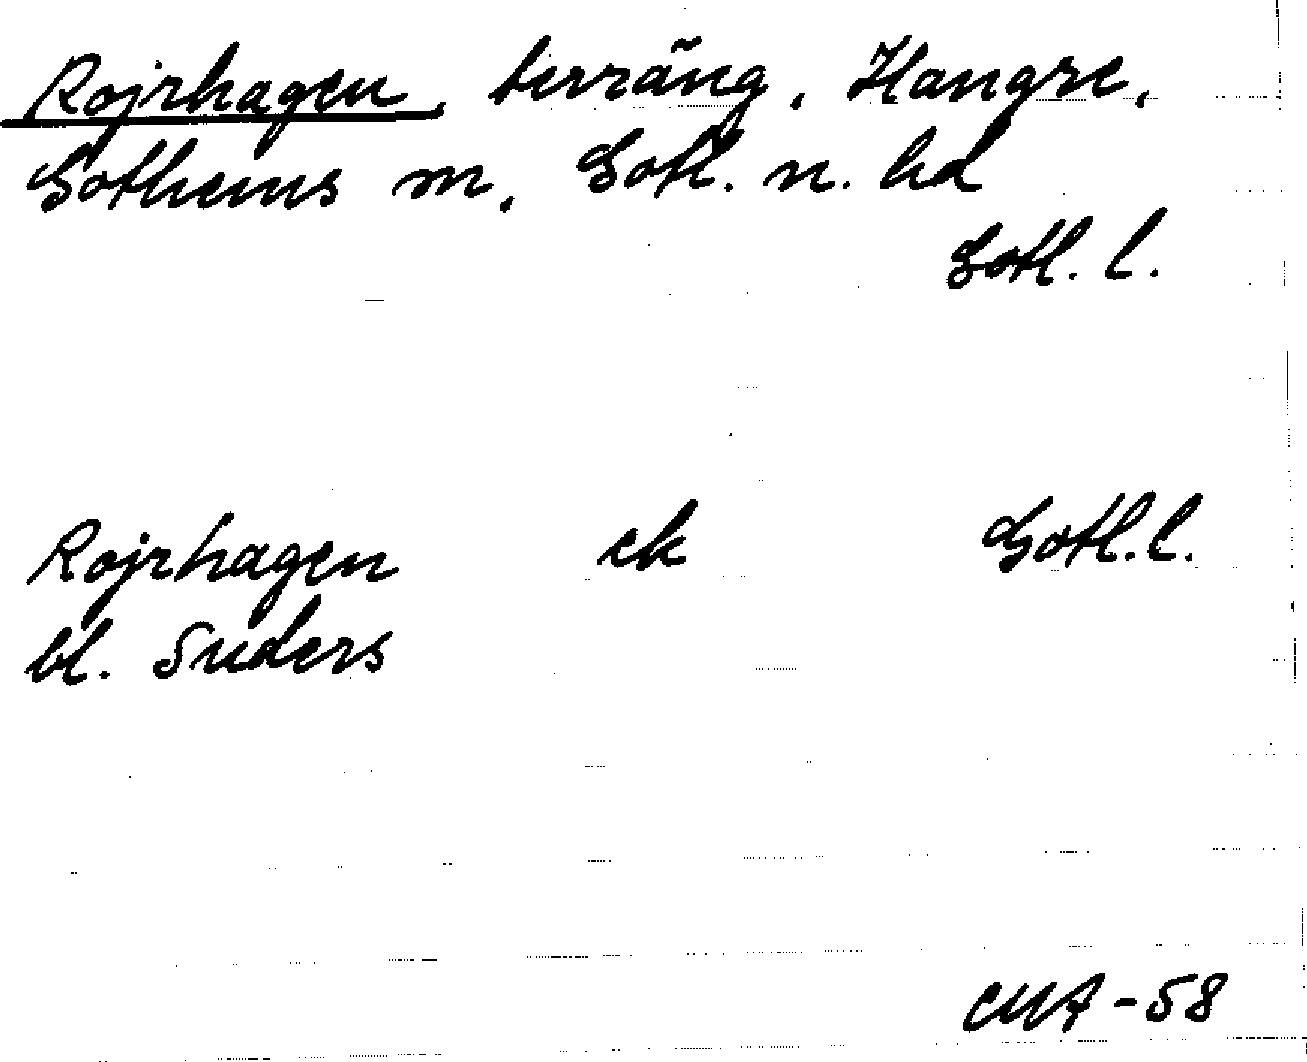 Rojrhagen, terräng, Hangre,
Gothems sn, Gotl. n. hd
Gotl. l.
Rojrhagen ek Gotl. l.
bl. Suders
CMA-58